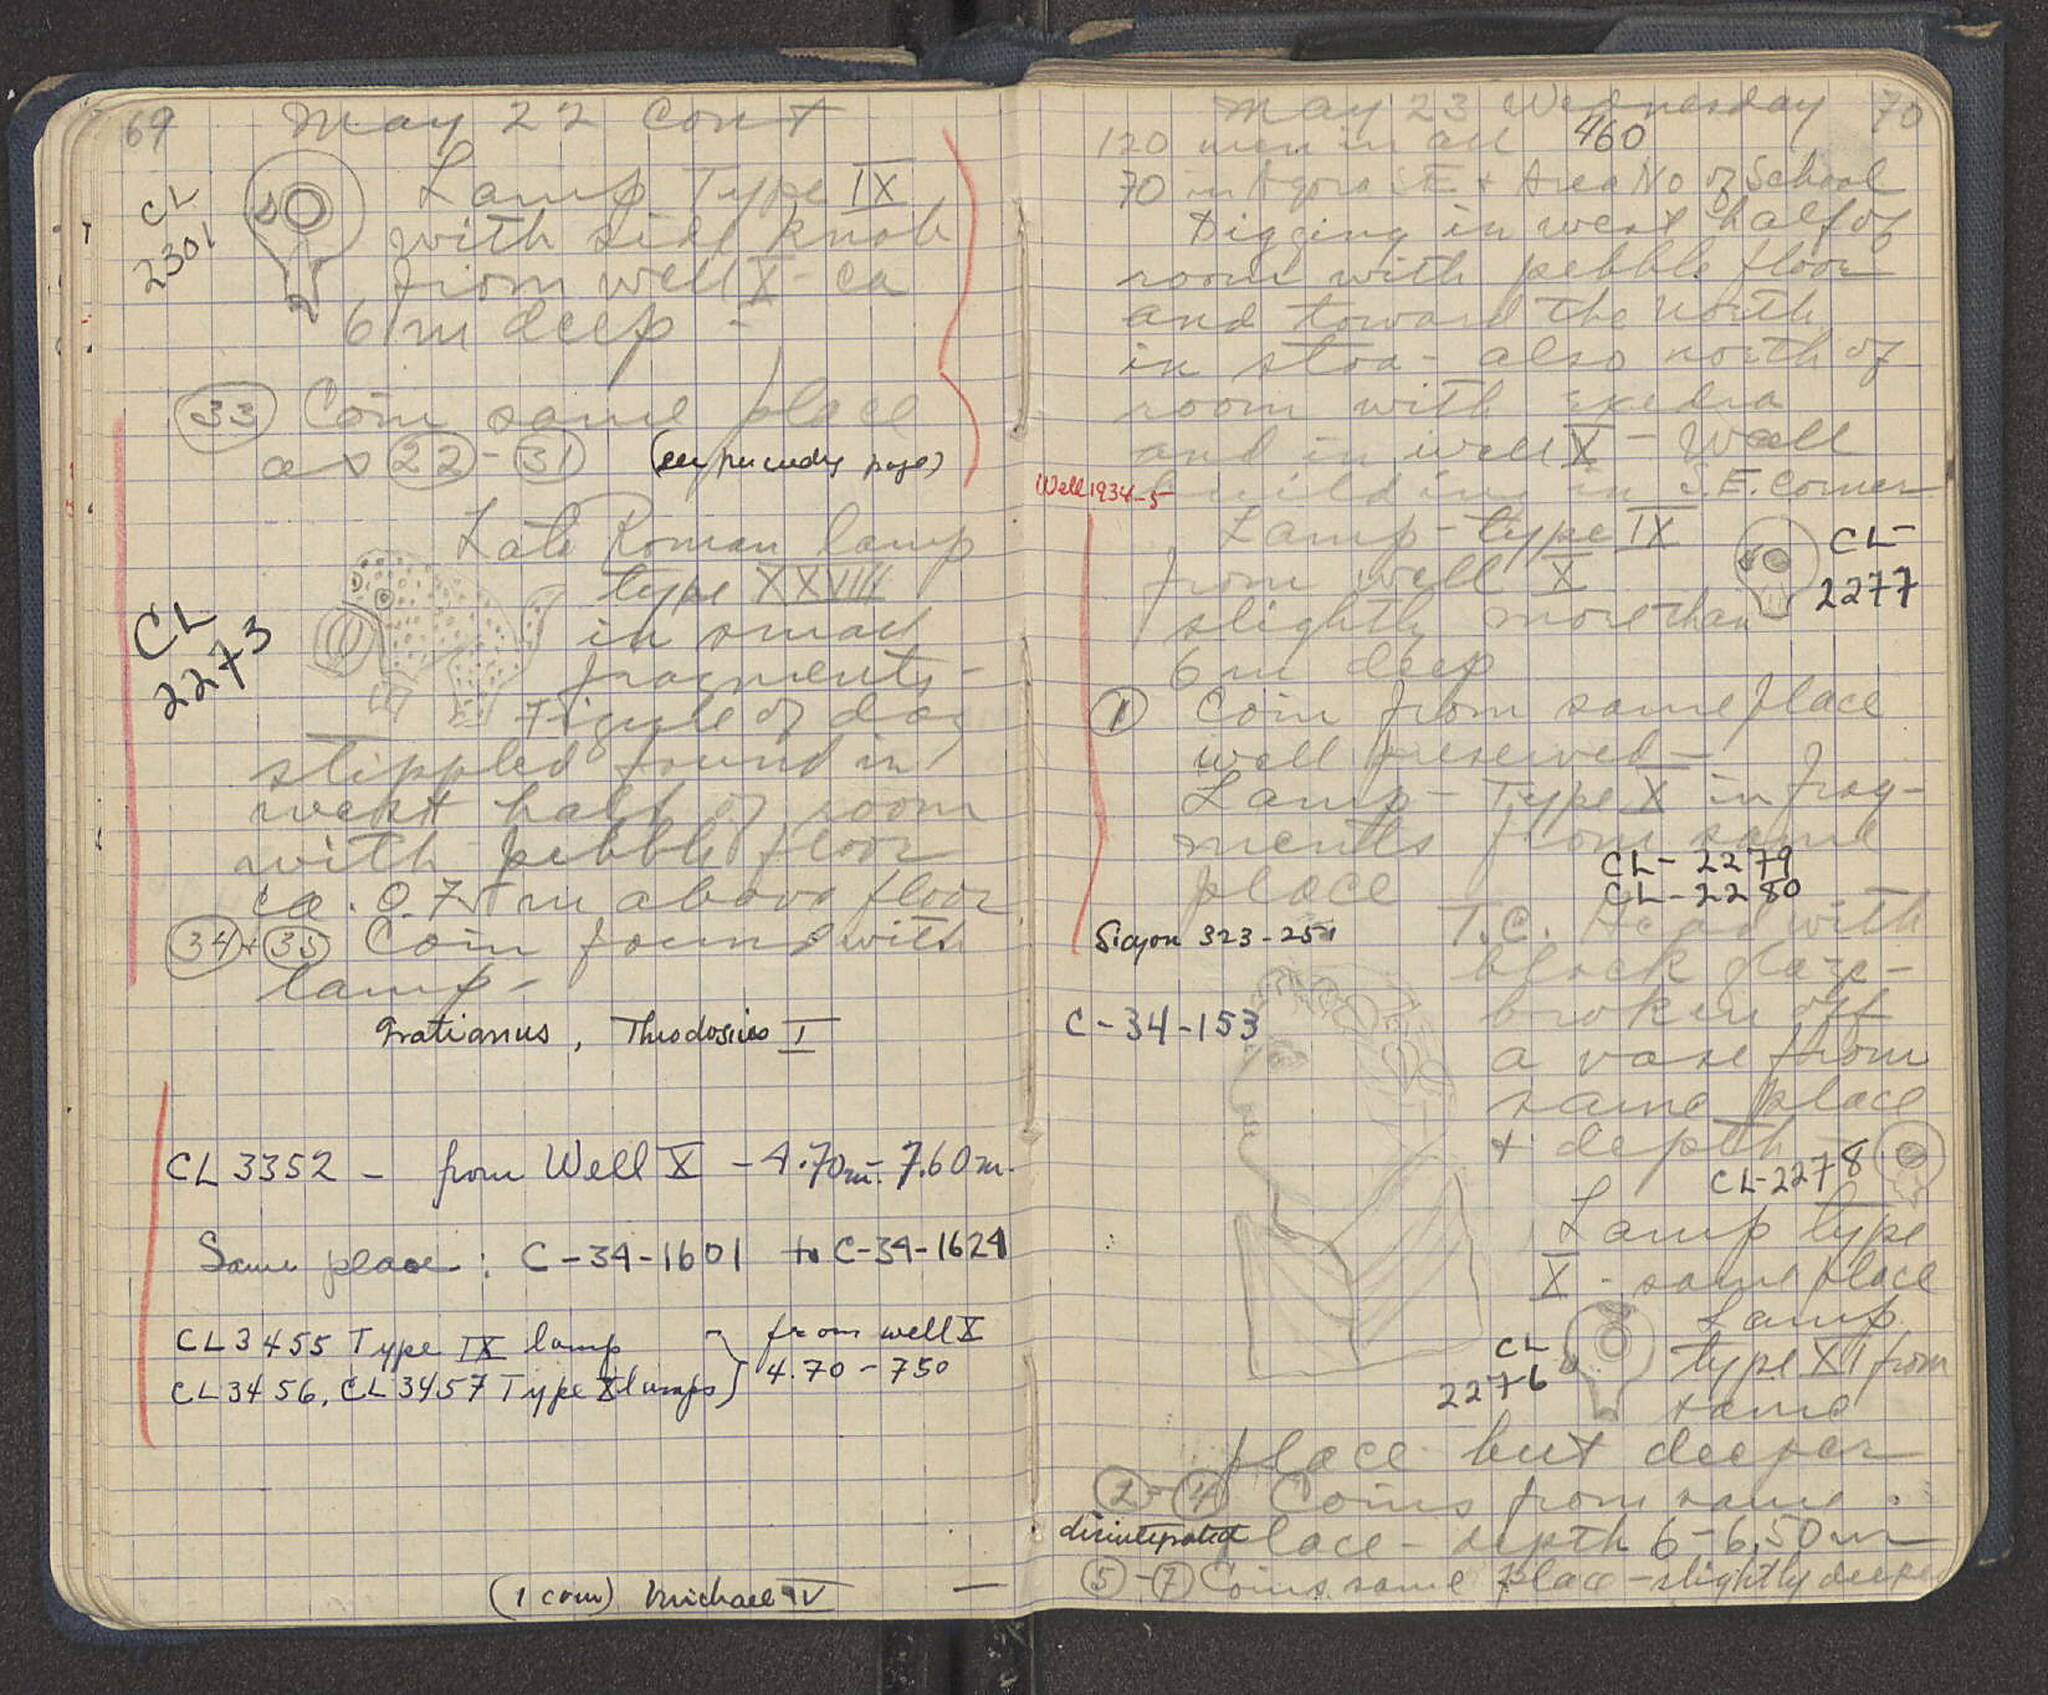 69 May 22 Cont
CL
2301
Lamp Type IX
with side knob
from well X - ca
6 m deep -
33 Coin same place
as 22 - 31 (see preceding page)
Late Roman lamp
type XXVIII
in small
fragments -
CL
2273
Figure of dog
stippled found in
west half of room
with pebble floor
ca. 0.75 m above floor
34 + 35 Coin found with
lamp -
Gratianus, Theodosius I
CL 3352 - from Well X - 4.70m - 7.60m.
Same place : C-34-1601 to C-34-1624
CL 3455 Type IX lamp
CL 3456, CL 3457 Type X lamps
from well X
4.70 - 750
(1 coin) Michael IV
May 23 Wednesday 70
120 men in all 460
70 in Agora S E + Area No of School
Digging in west half of
room with pebble floor
and toward the north
in stoa - also north of
room with exedra
and in well X - Wall
building in S.E. Corner
Well 1934-5
Lamp - type IX
from well X
CL-
2277
slightly more than
6 m deep
1 Coin from same place
well preserved -
Lamp - Type X in frag-
ments from same
place
CL- 2279
CL- 2280
Sicyon 323-251
T.C. Head with
black glaze -
C-34-153
broken off
a vase from
same place
+ depth
CL-2278
Lamp type
X - same place
CL
2276
Lamp
type XI from
same
place but deeper
2-4 Coins from same
place - depth 6-6.50 m
disintegrated
5-7 Coins same place - slightly deeper